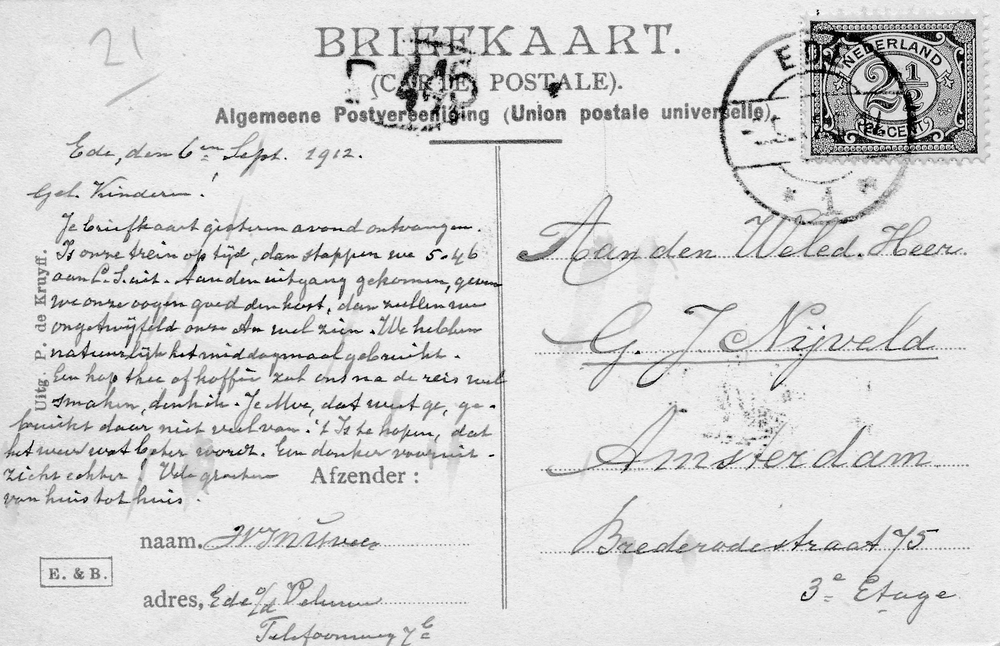 21
BRIEFKAART.
(CARTE POSTALE).
Algemeene Postvereeniging (Union postale universelle).
EDE
1
NEDERLAND
2½
CENT
Ede, den 6en Sept. 1912.
Gel. Kinderen!
Je briefkaart gisteren avond ontvangen.
Is onze trein op tijd, dan stappen we 5.46
aan C.S. uit. Aan den uitgang gekomen, geven
we onze oogen goed den kost, dan zullen we
ongetwijfeld onze An wel zien. We hebben
natuurlijk het middagmaal gebruikt.
Een kop thee of koffie zal ons na de reis wel
smaken, denk ik. Je Moe, dat weet ge, ge-
bruikt daar niet veel van. 't Is te hopen, dat
het weer wat beter wordt. Een donker vooruit-
zicht echter! Vele groeten
van huis tot huis.
Uitg. P. de Kruyff.
Afzender:
naam.
E. & B.
adres, Ede o/d Veluwe
Telefoonweg 7
Aan den Weled. Heer
G. J. Nijveld
Amsterdam
Brederodestraat 75
3e Etage.